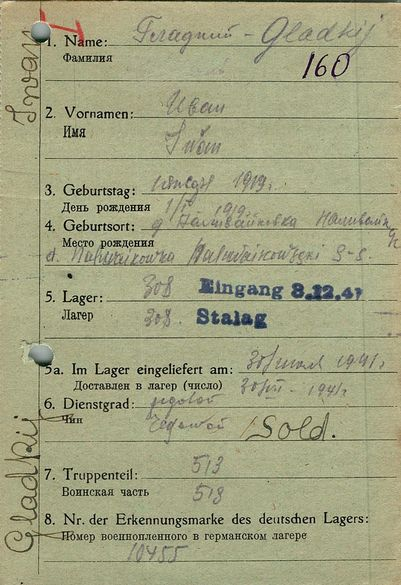 Ivan
1. Name: Гладкий - Gladkij
Фамилия
160
2. Vornamen: Иван
Имя
3. Geburtstag: 1919г.
День рождения 1919
4. Geburtsort: д
Место рождения
d.
5. Lager: 308 Eingang 3.12.41
Лагер 308 Stalag
5a. Im Lager eingeliefert am: 30/июля 1941г.
Доставлен в лагер (число) 30/VII - 1941г.
6. Dienstgrad:
Чин Sold.
7. Truppenteil: 513
Воинская часть 513
8. Nr. der Erkennungsmarke des deutschen Lagers:
Номер военнопленного в германском лагере
10455
Gladkij